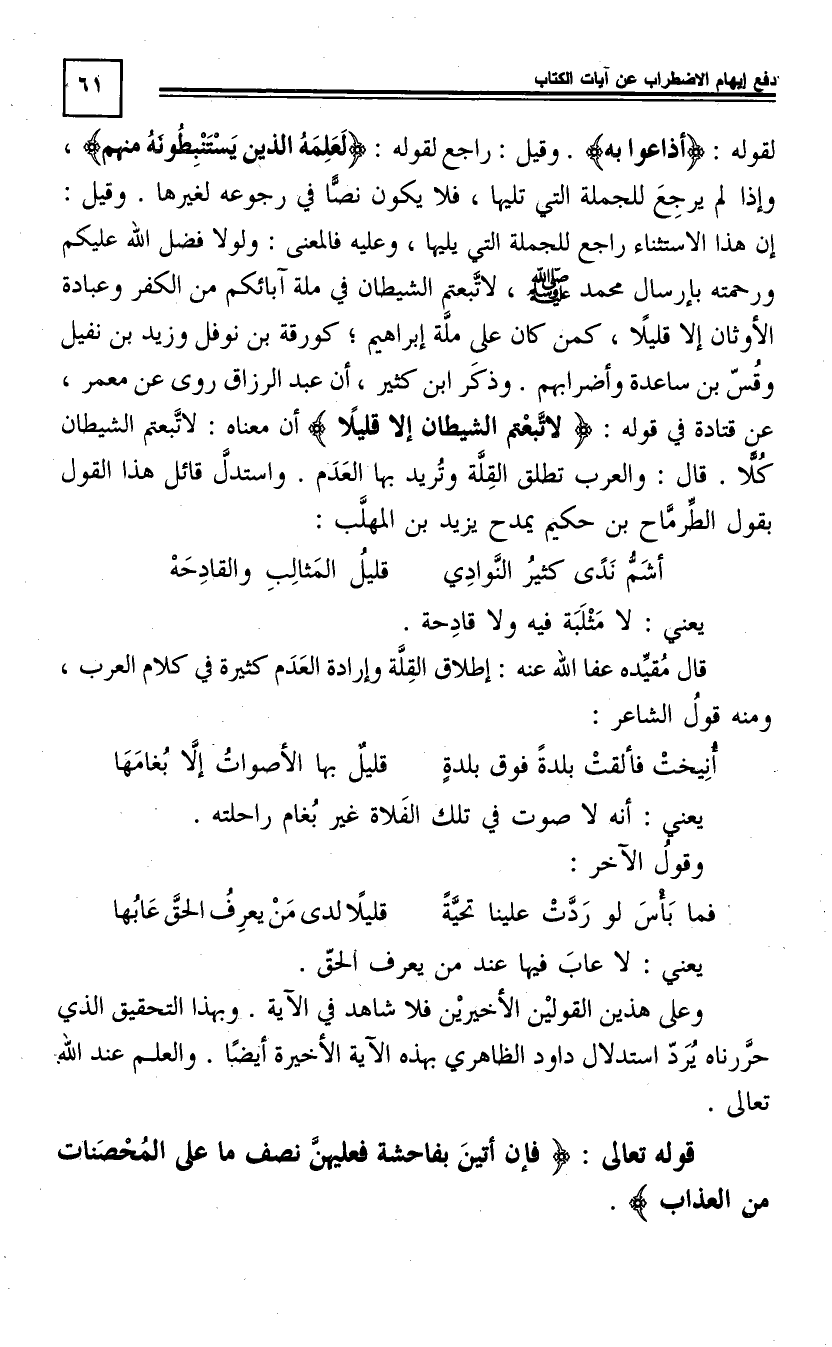 دفع إيهام الاضطراب عن آيات الكتاب
٦١
لقوله : ﴿أذاعوا به﴾ . وقيل : راجع لقوله : ﴿لَعَلِمَهُ الذين يَسْتَنْبِطُونَهُ منهم﴾ ،
وإذا لم يرجِعَ للجملة التي تليها ، فلا يكون نصًّا في رجوعه لغيرها . وقيل :
إن هذا الاستثناء راجع للجملة التي يليها ، وعليه فالمعنى : ولولا فضل الله عليكم
ورحمته بإرسال محمد ﷺ ، لاتَّبعتم الشيطان في ملة آبائكم من الكفر وعبادة
الأوثان إلا قليلًا ، كمن كان على ملَّة إبراهيم ؛ كورقة بن نوفل وزيد بن نفيل
وقُسّ بن ساعدة وأضرابهم . وذكَر ابن كثير ، أن عبد الرزاق روى عن معمر ،
عن قتادة في قوله : ﴿ لاتَّبعْتم الشيطان إلا قليلًا ﴾ أن معناه : لاتَّبعتم الشيطان
كُلًّا . قال : والعرب تطلق القِلَّة وتُريد بها العَدَم . واستدلَّ قائل هذا القول
بقول الطِّرمَّاح بن حكيم يمدح يزيد بن المهلَّب :
أشَمُّ نَدًى كثيرُ النَّوادِي قليلُ المَثالِبِ والقادِحَهْ
يعني : لا مَثْلَبَة فيه ولا قادِحة .
قال مُقيِّده عفا الله عنه : إطلاق القِلَّة وإرادة العَدَم كثيرة في كلام العرب ،
ومنه قولُ الشاعر :
أُنِيختْ فألقتْ بلدةً فوق بلدةٍ قليلٌ بها الأصواتُ إلَّا بُغامَهَا
يعني : أنه لا صوت في تلك الفَلاة غير بُغام راحلته .
وقولُ الآخر :
فما بَأْسَ لو رَدَّتْ علينا تحيَّةً قليلًا لدى مَنْ يعرِفُ الحقَّ عَابُها
يعني : لا عابَ فيها عند من يعرف الحقّ .
وعلى هذين القوليْن الأخيريْن فلا شاهد في الآية . وبهذا التحقيق الذي
حرَّرناه يُرَدّ استدلال داود الظاهري بهذه الآية الأخيرة أيضًا . والعلم عند الله
تعالى .
قوله تعالى : ﴿ فإن أتينَ بفاحشة فعليهنَّ نصف ما على المُحْصَنات
من العذاب ﴾ .